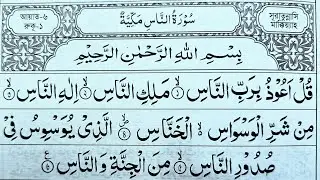 আয়াত-৬
রুকূ-১
سُوْرَةُ النَّاسِ مَكِّيَّةٌ
সূরাতুন্নাসি
মাক্কিয়্যাহ
بِسْمِ اللّٰهِ الرَّحْمٰنِ الرَّحِيْمِ
قُلْ اَعُوْذُ بِرَبِّ النَّاسِ ۙ مَلِكِ النَّاسِ ۙ اِلٰهِ النَّاسِ ۙ
مِنْ شَرِّ الْوَسْوَاسِ ۙ الْخَنَّاسِ ۙ الَّذِيْ يُوَسْوِسُ فِيْ
صُدُوْرِ النَّاسِ ۙ مِنَ الْجِنَّةِ وَ النَّاسِ